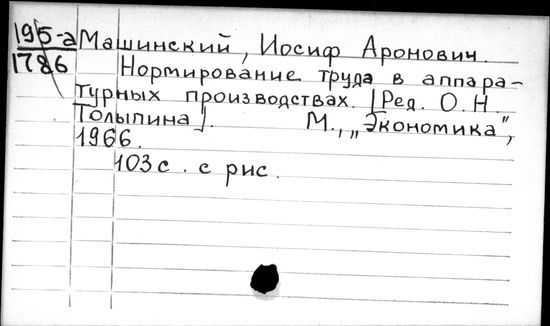 195-а Машинский, Иосиф Аронович.
1786 Нормирование труда в аппара-
турных производствах. [Ред. О.Н.
Толыпина]. М., „Экономика",
1966.
103 с. с рис.